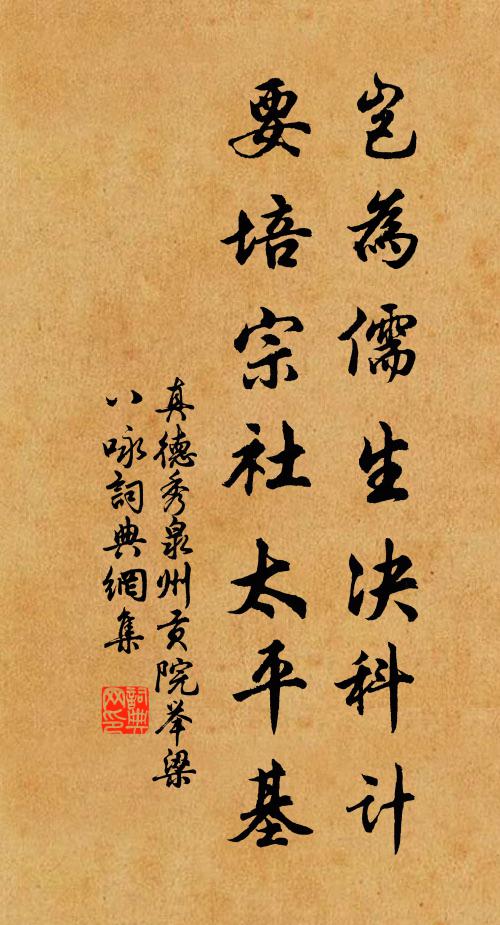 岂為儒生决科计
要培宗社太平基
真德秀泉州贡院举梁
八咏詞典網集
詞典
网印